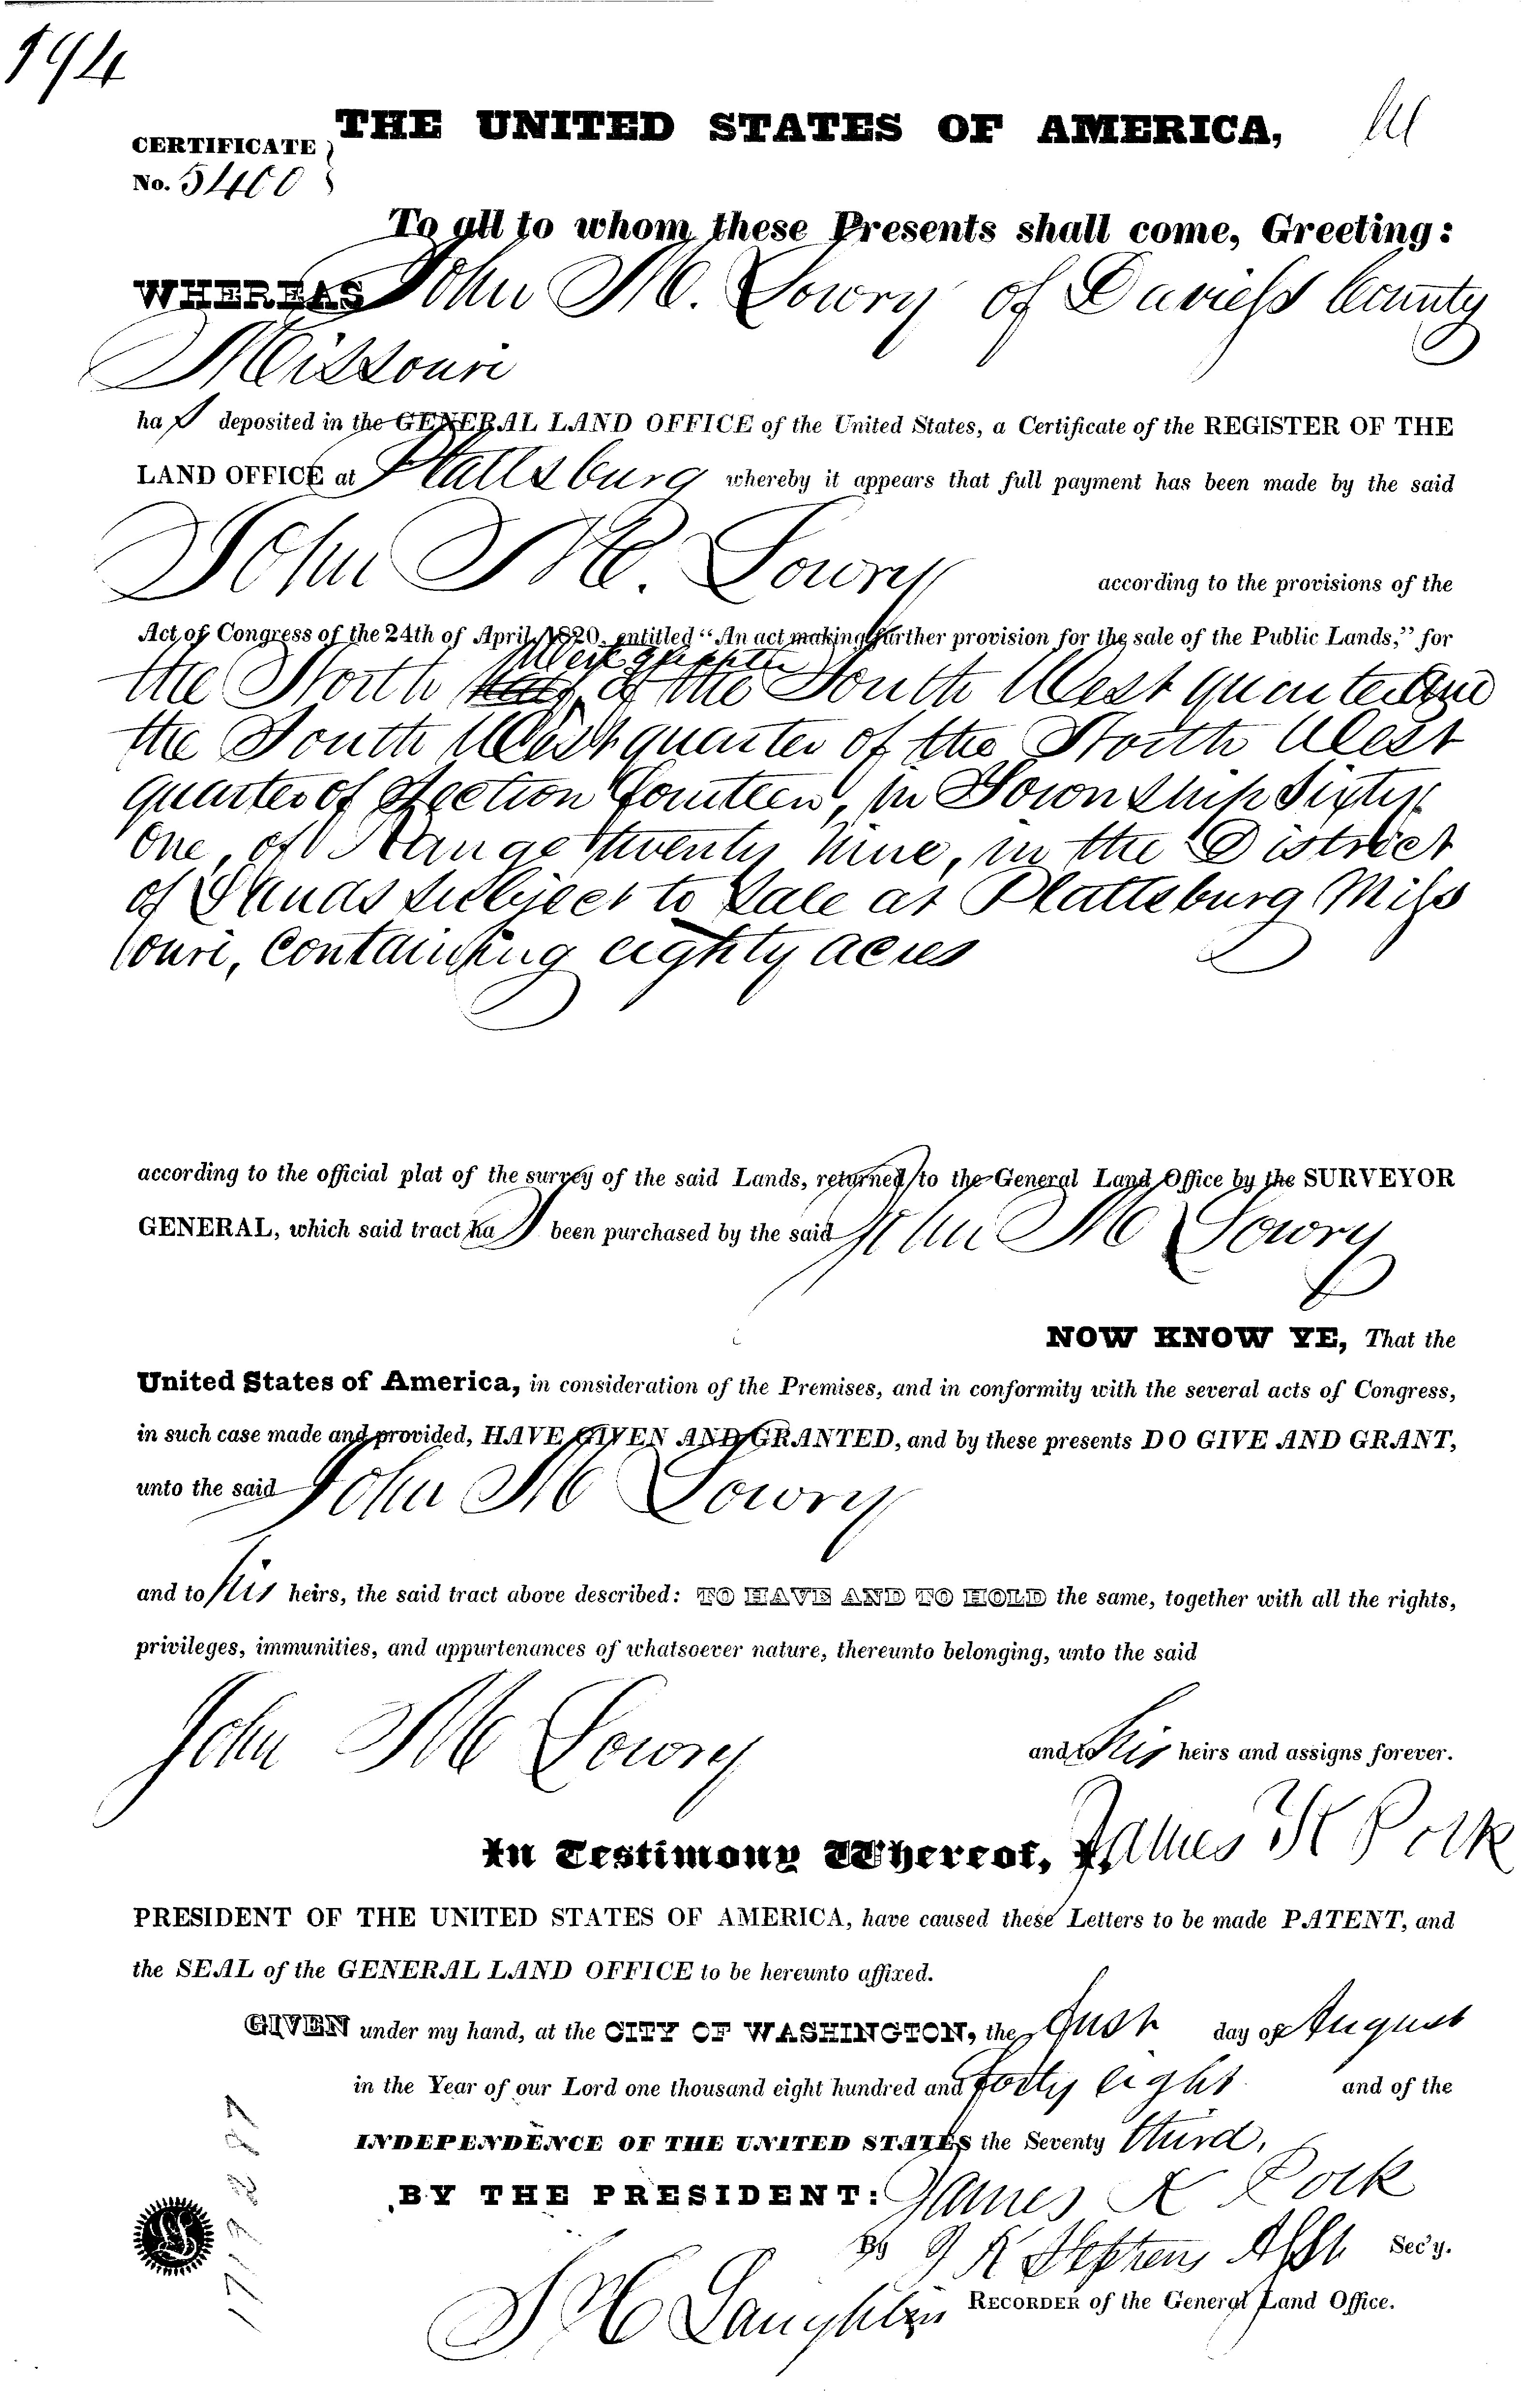 194
THE UNITED STATES OF AMERICA,
CERTIFICATE
No. 5460
To all to whom these Presents shall come, Greeting:
WHEREAS John M. Lowry of Daviess County
Missouri
has deposited in the GENERAL LAND OFFICE of the United States, a Certificate of the REGISTER OF THE
LAND OFFICE at Plattsburg whereby it appears that full payment has been made by the said
John M. Lowry according to the provisions of the
Act of Congress of the 24th of April, 1820, entitled "An act making further provision for the sale of the Public Lands," for
West quarter
the North of the South West quarter and
the South West quarter of the North West
quarter of Section fourteen, in Township Sixty
one, of Range twenty nine, in the District
of Lands subject to Sale at Plattsburg Miss
ouri, containing eighty acres
according to the official plat of the survey of the said Lands, returned to the General Land Office by the SURVEYOR
GENERAL, which said tract has been purchased by the said John M Lowry
NOW KNOW YE, That the
United States of America, in consideration of the Premises, and in conformity with the several acts of Congress,
in such case made and provided, HAVE GIVEN AND GRANTED, and by these presents DO GIVE AND GRANT,
unto the said John M Lowry
and to his heirs, the said tract above described: TO HAVE AND TO HOLD the same, together with all the rights,
privileges, immunities, and appurtenances of whatsoever nature, thereunto belonging, unto the said
John M Lowry and to his heirs and assigns forever.
In Testimony Whereof, I, James K Polk
PRESIDENT OF THE UNITED STATES OF AMERICA, have caused these Letters to be made PATENT, and
the SEAL of the GENERAL LAND OFFICE to be hereunto affixed.
GIVEN under my hand, at the CITY OF WASHINGTON, the first day of August
in the Year of our Lord one thousand eight hundred and forty eight and of the
INDEPENDENCE OF THE UNITED STATES the Seventy third.
BY THE PRESIDENT: James K Polk
By J K Stephens Asst Sec'y.
S H Laughlin RECORDER of the General Land Office.